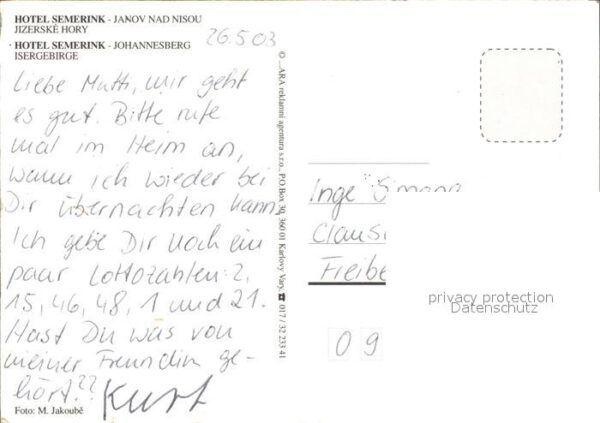 HOTEL SEMERINK - JANOV NAD NISOU
JIZERSKÉ HORY
HOTEL SEMERINK - JOHANNESBERG
ISERGEBIRGE
26.5.03
Liebe Mutti, mir geht
es gut. Bitte rufe
mal im Heim an,
wann ich wieder bei
Dir übernachten kann.
Ich gebe Dir noch ein
paar Lottozahlen: 2,
15, 46, 48, 1 und 21.
Hast Du was von
meiner Freundin ge-
hört??
Kurt
Foto: M. Jakoubě
© ARA reklamní agentura s.r.o., PO Box 30, 360 01 Karlovy Vary, ☎ 017 / 32 233 41
Inge
Freibe
09
privacy protection
Datenschutz